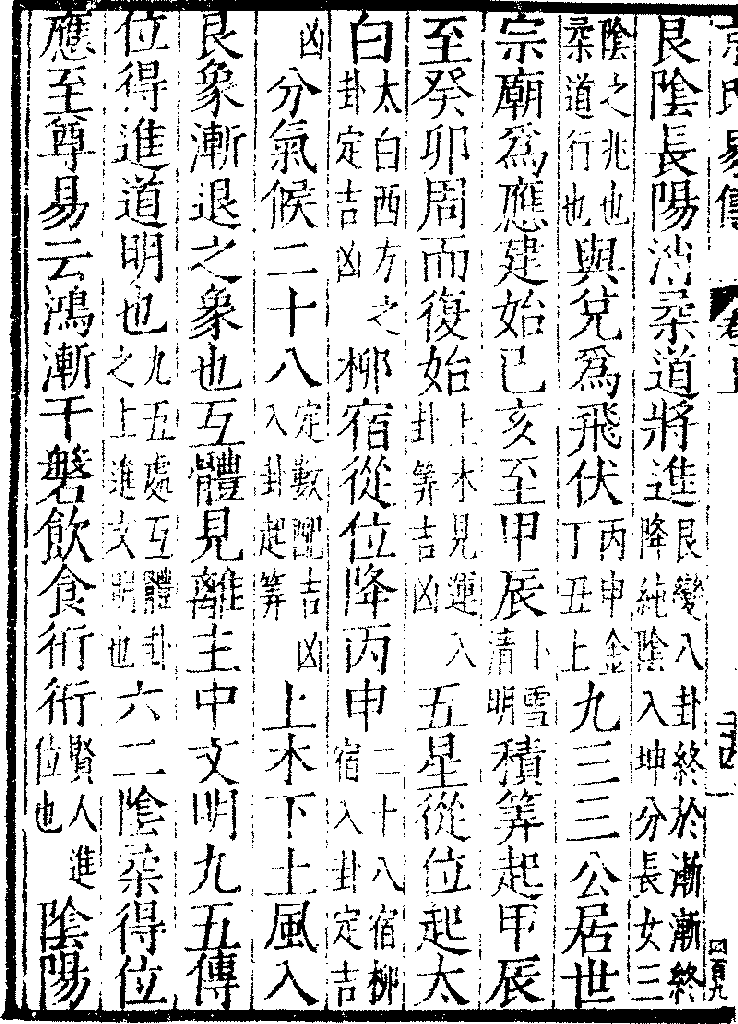 京氏易傳
艮陰長陽消柔道將進艮變八卦終於漸漸終降純陰入坤分長女三
陰之兆也柔道行也與兌爲飛伏丙申金丁丑上九三三公居世
宗廟爲應建始已亥至甲辰小雪清明積筭起甲辰
至癸卯周而復始上木見運入卦筭吉凶五星從位起太
白太白西方之卦定吉凶柳宿從位降丙申二十八宿柳宿入卦定吉
凶分氣候二十八定數配吉凶入卦起筭上木下土風入
艮象漸退之象也互體見離主中文明九五傳
位得進道明也九五處互體卦之上進文明也六二陰柔得位
應至尊易云鴻漸于磐飲食衎衎賢人進位也陰陽
四百九